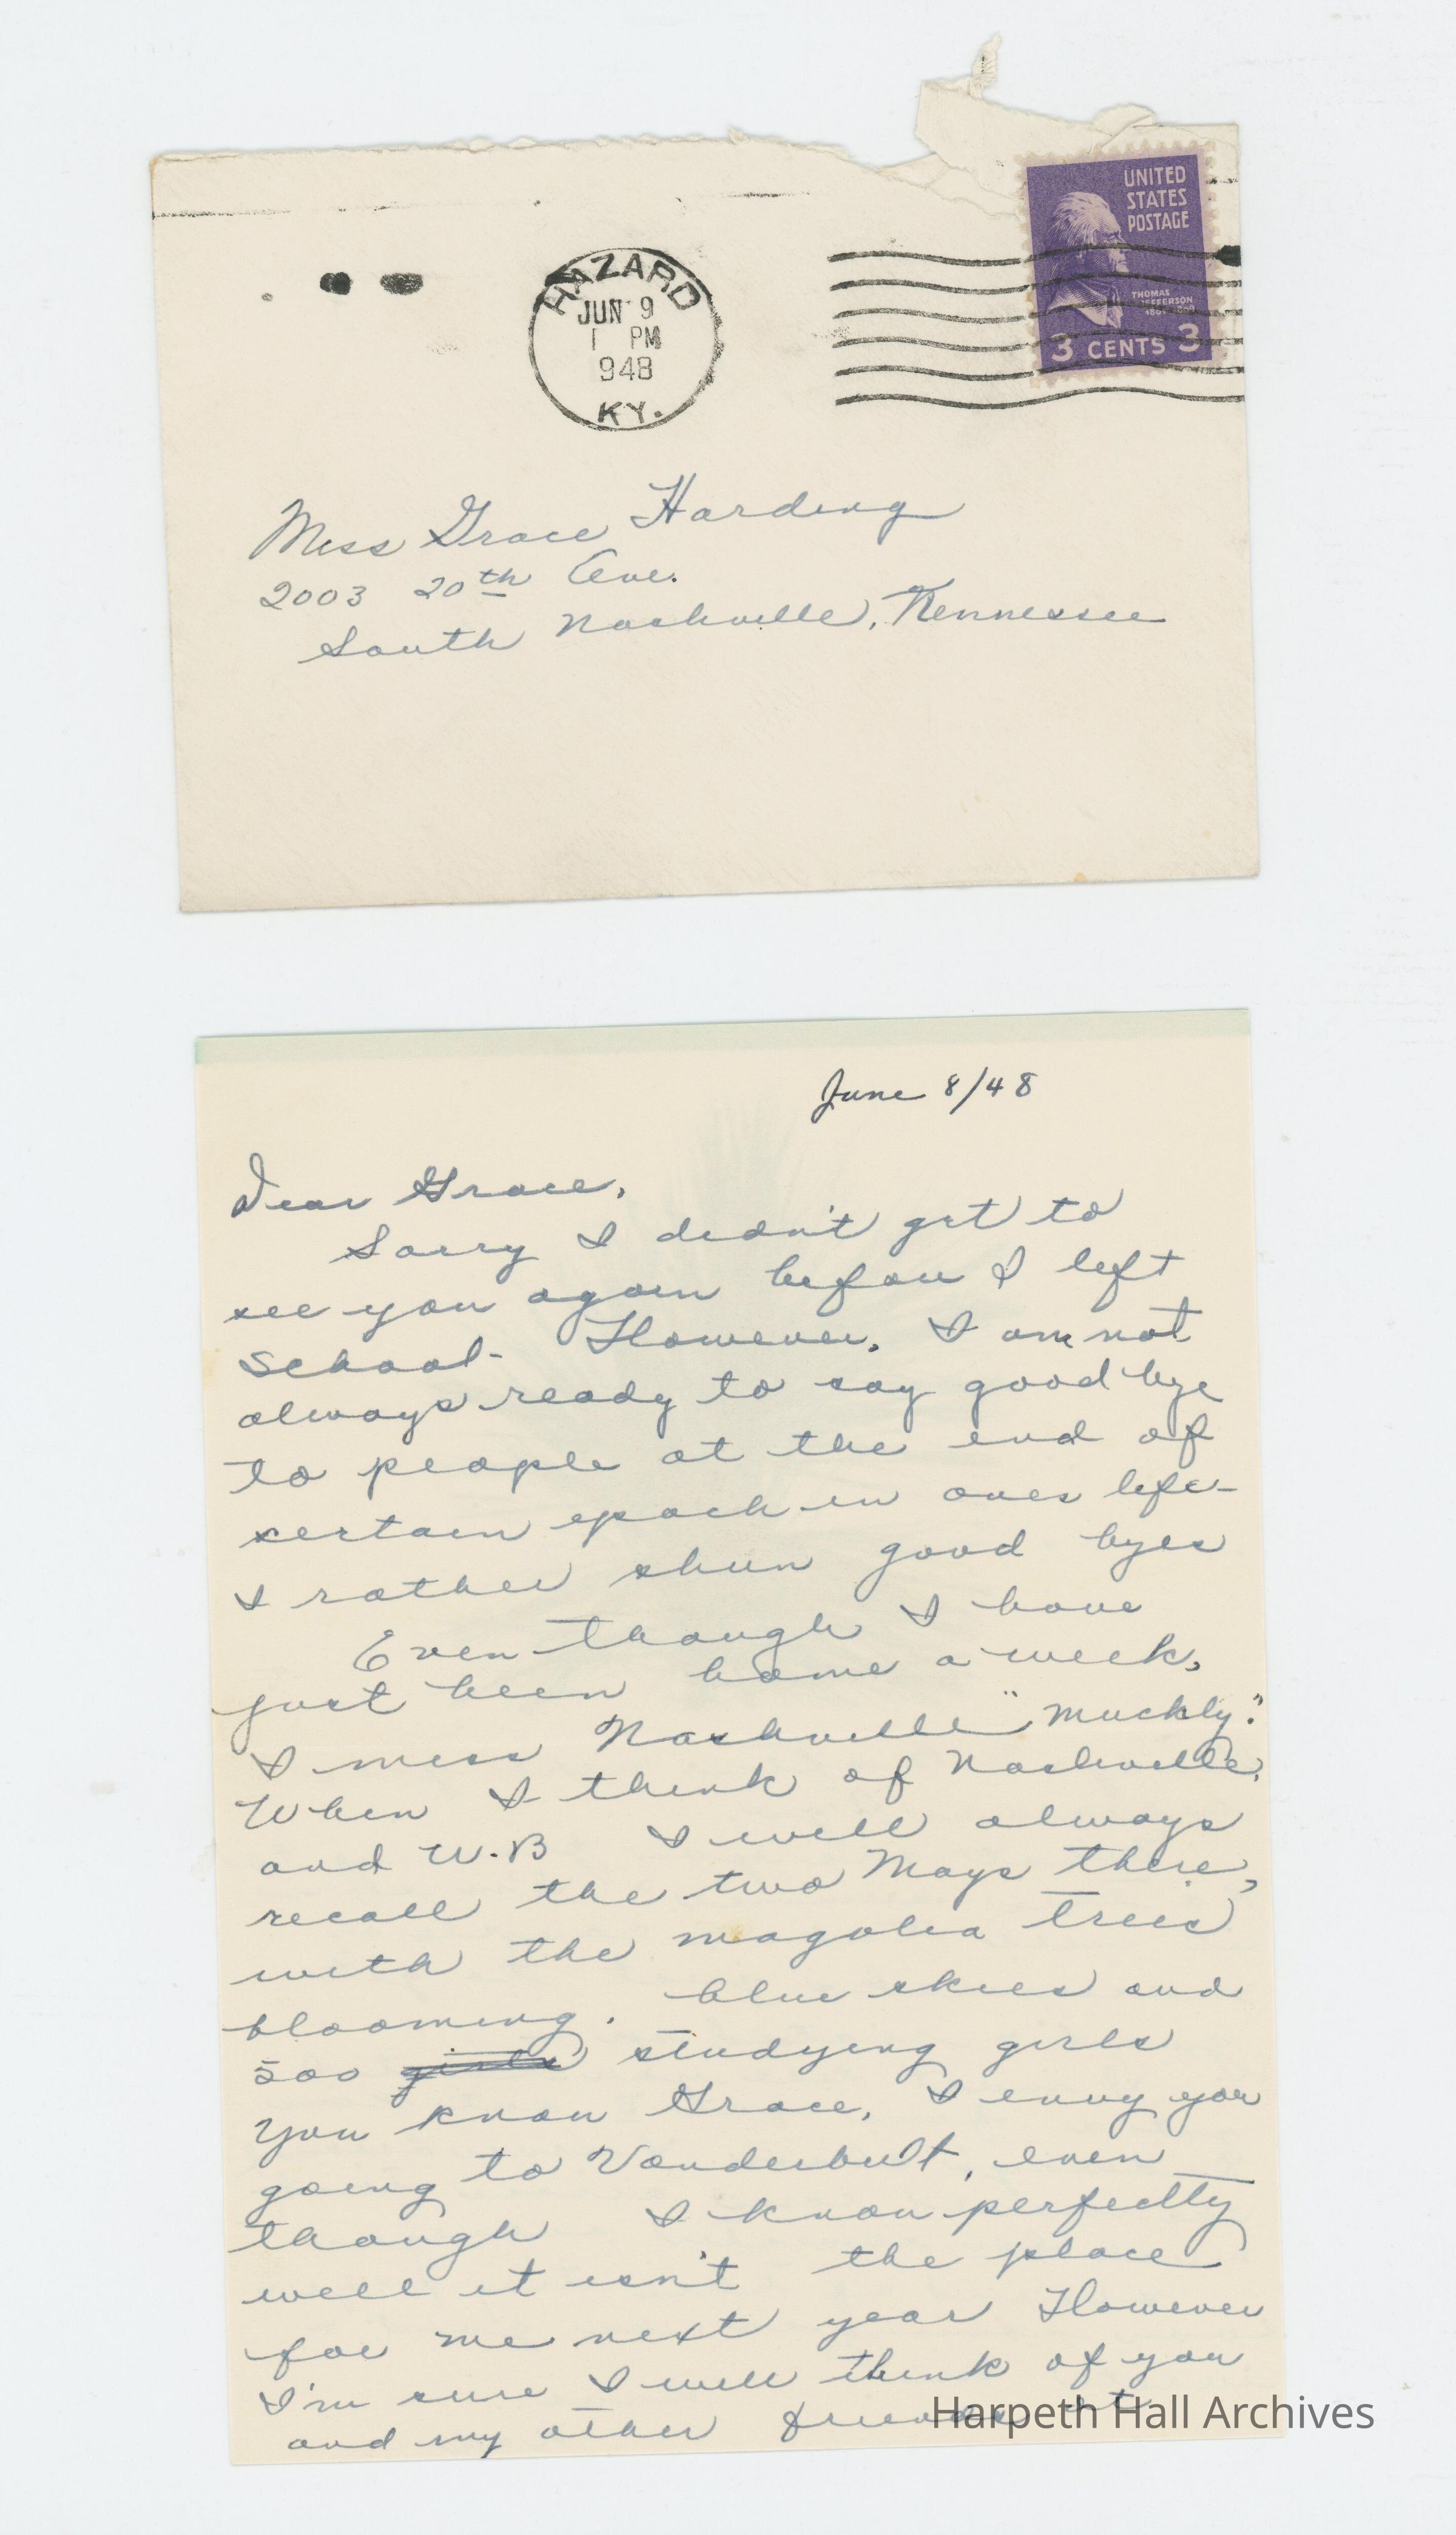 UNITED
STATES
POSTAGE
THOMAS
JEFFERSON
3 CENTS 3
HAZARD
JUN 9
1 PM
948
KY.
Miss Grace Harding
2003 20th Ave.
South Nashville, Tennessee
June 8/48
Dear Grace,
Sorry I didn't get to
see you again before I left
school. However, I am not
always ready to say goodbye
to people at the end of
certain epoch in ones life-
I rather shun good byes
Even though I have
just been home a week,
I miss Nashville "muchly."
When I think of Nashville,
and W.B I will always
recall the two Mays there,
with the magolia trees
blooming. blue skies and
500 girls studying girls
You know Grace, I envy you
going to Vanderbilt, even
though I know perfectly
well it isn't the place
for me next year However
I'm sure I will think of you
and my other friends at
Harpeth Hall Archives